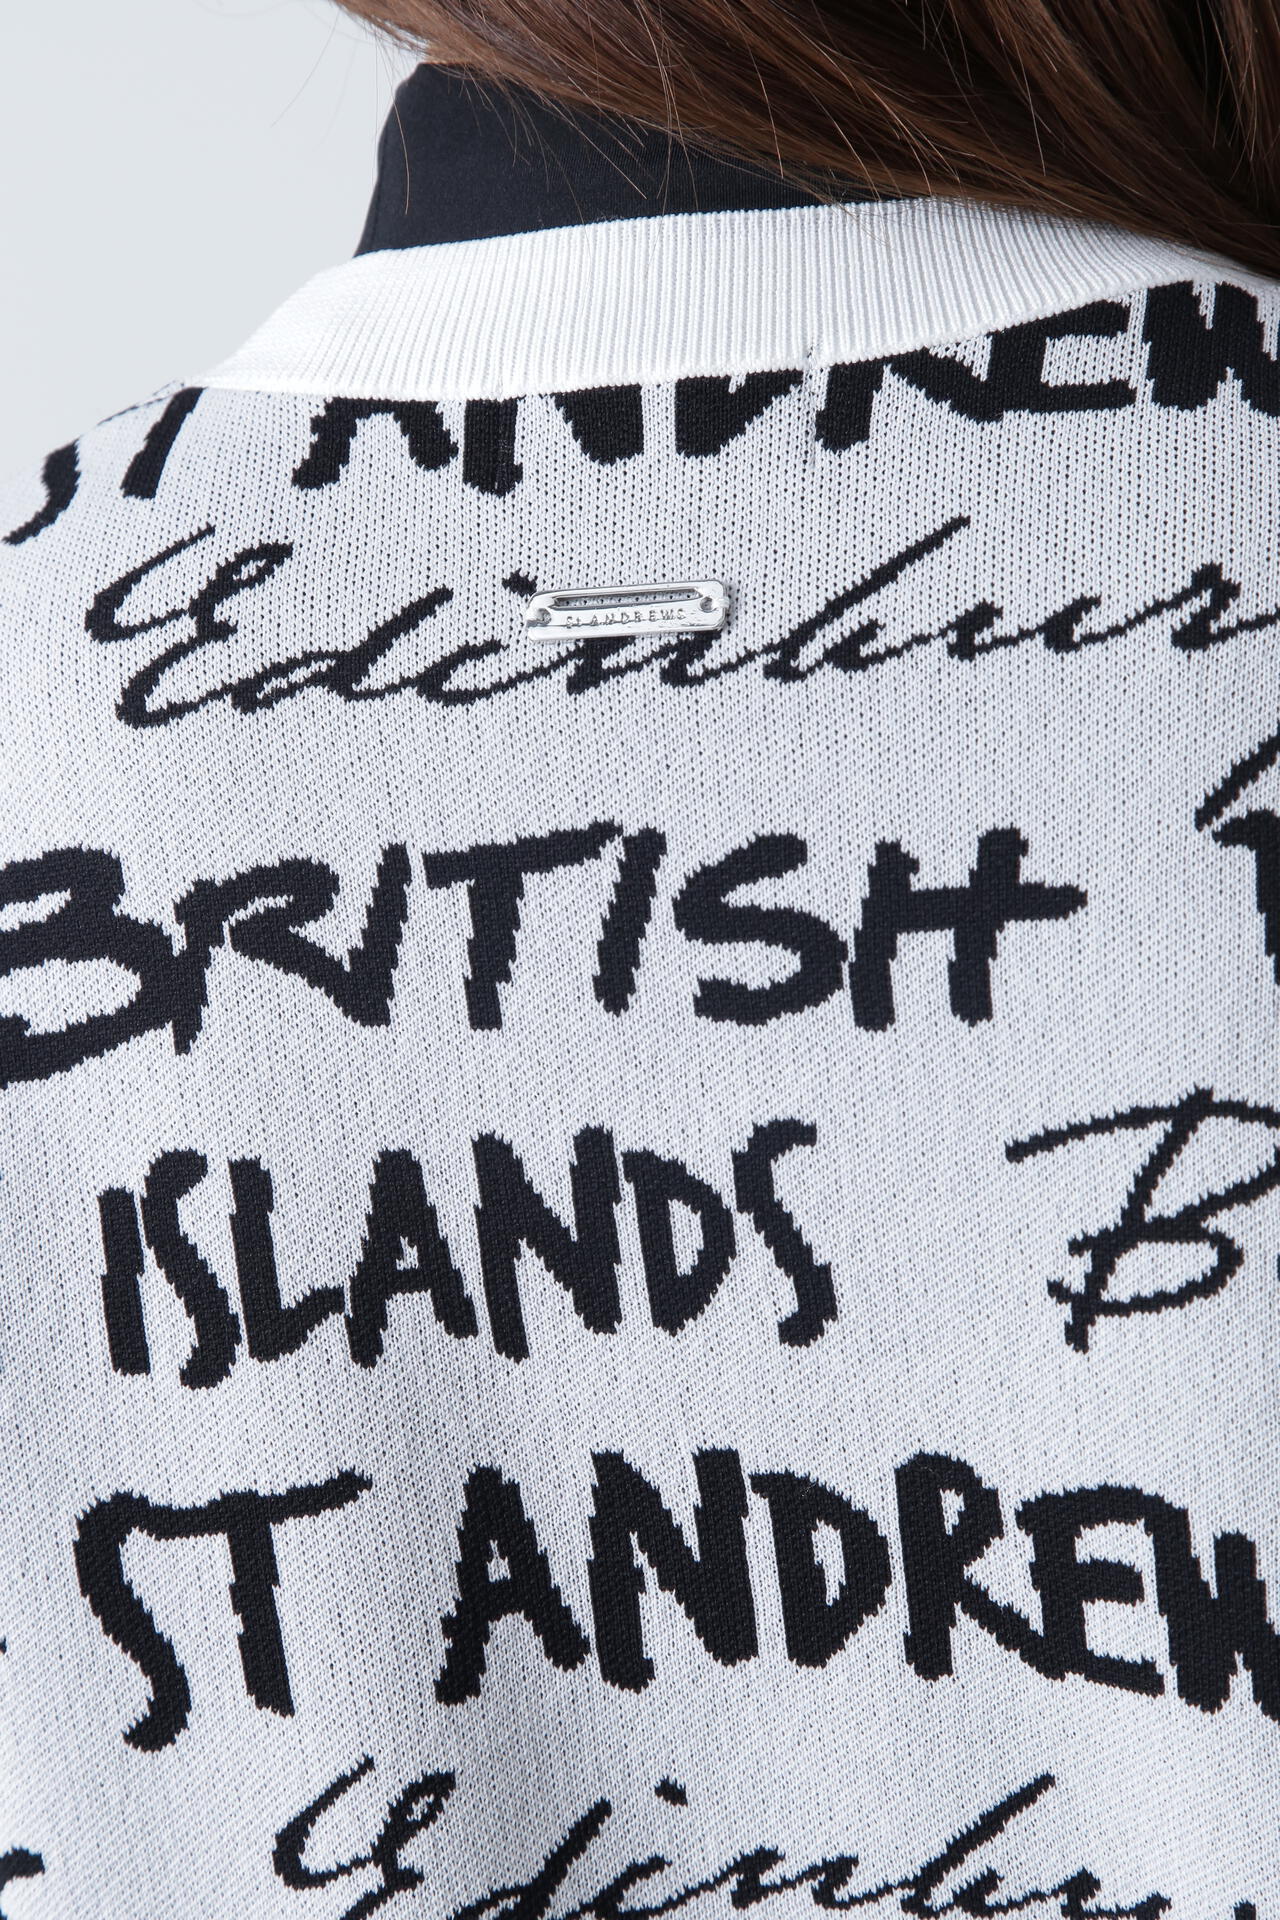 ST ANDREW
Edinbur
St ANDREWS
BRITISH
ISLANDS
B
ST ANDREW
Edinbur